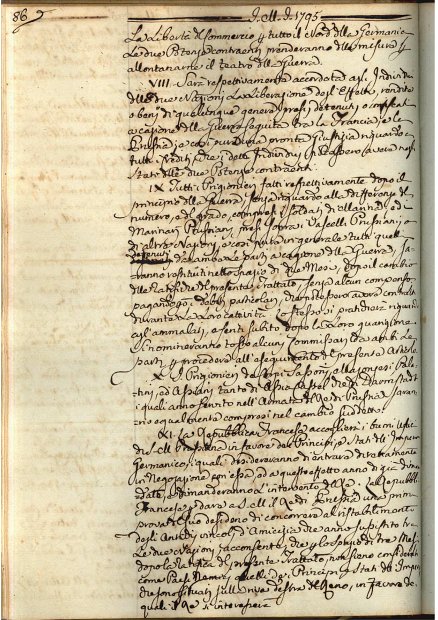 86
J. M. J. 1795
La Libertà del Commercio per tutto il Nord della Germania
Le due Potenze contraenti prenderanno delle misure per
allontanarne il teatro della Guerra.
VIII. Sarà respettivamente accordata agli Individui
delle due Nazioni la liberazione degli Effetti, rendite
o beni di qualunque genere presi, detenuti o confiscati
a cagione della Guerra seguita tra la Francia, e la
Prussia, e così pure una pronta Giustizia riguardo a
tutti i Crediti, che i detti Individui potessero avere negli
Stati delle due Potenze contraenti.
IX. Tutti i Prigionieri fatti respettivamente dopo il
principio della Guerra, senza riguardo alla differenza del
numero, e del grado, compresi i Soldati di Marina, ed
Marinari Prussiani presi sopra i Vascelli Prussiani, o
d'altre Nazioni, e così pure in generale tutti quelli
detenuti da ambe le parti a cagione della Guerra, sa-
ranno restituiti nello spazio di due Mesi, dopo il cambio
delle Ratifiche del presente Trattato, senza alcun compenso
pagando però i debiti particolari, che questi avranno contratti
durante la loro cattività. Lo stesso si praticherà riguardo
agl'ammalati, e feriti subito dopo la loro guarigione.
Si nomineranno tosto alcuni Commissari da ambe le
parti per procedere all'eseguimento del presente Articolo.
X. I Prigionieri dei Corpi Sassoni, Magonzesi, Pala-
tini, ed Assiani tanto di Assia Cassel che di Darmstadt
i quali anno servito nell'Armata del Re di Prussia, saran-
no egualmente compresi nel cambio suddetto.
XI. La Repubblica Francese accetterà i buoni ufizi
di S. M. Prussiana in favore dei Principi, e Stati dell'Impero
Germanico, i quali desidereranno di entrare direttamente
in Negoziazione con essa, ed a quest'effetto anno di già diman-
data, o dimanderanno l'intervento del Re. La Repubblica
Francese per dare a S. M. il Re di Prussia una prima
prova del suo desiderio di concorrere al ristabilimento
degli Antichi vincoli d'Amicizia che anno sussistito fra
le due Nazioni, acconsente, che per lo spazio di tre Mesi
dopo la Ratifica del presente Trattato, non sieno considerati
come Paesi Nemici quelli dei Principi, e Stati dell'Impero
che sono situati sulla riva destra del Reno, in favore de'
quali il Re s'interesserà